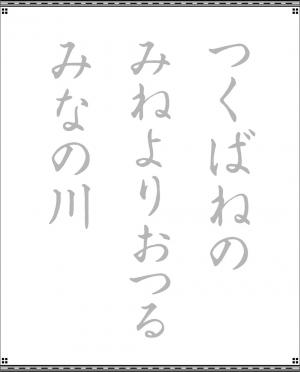 つくばねの
みねよりおつる
みなの川